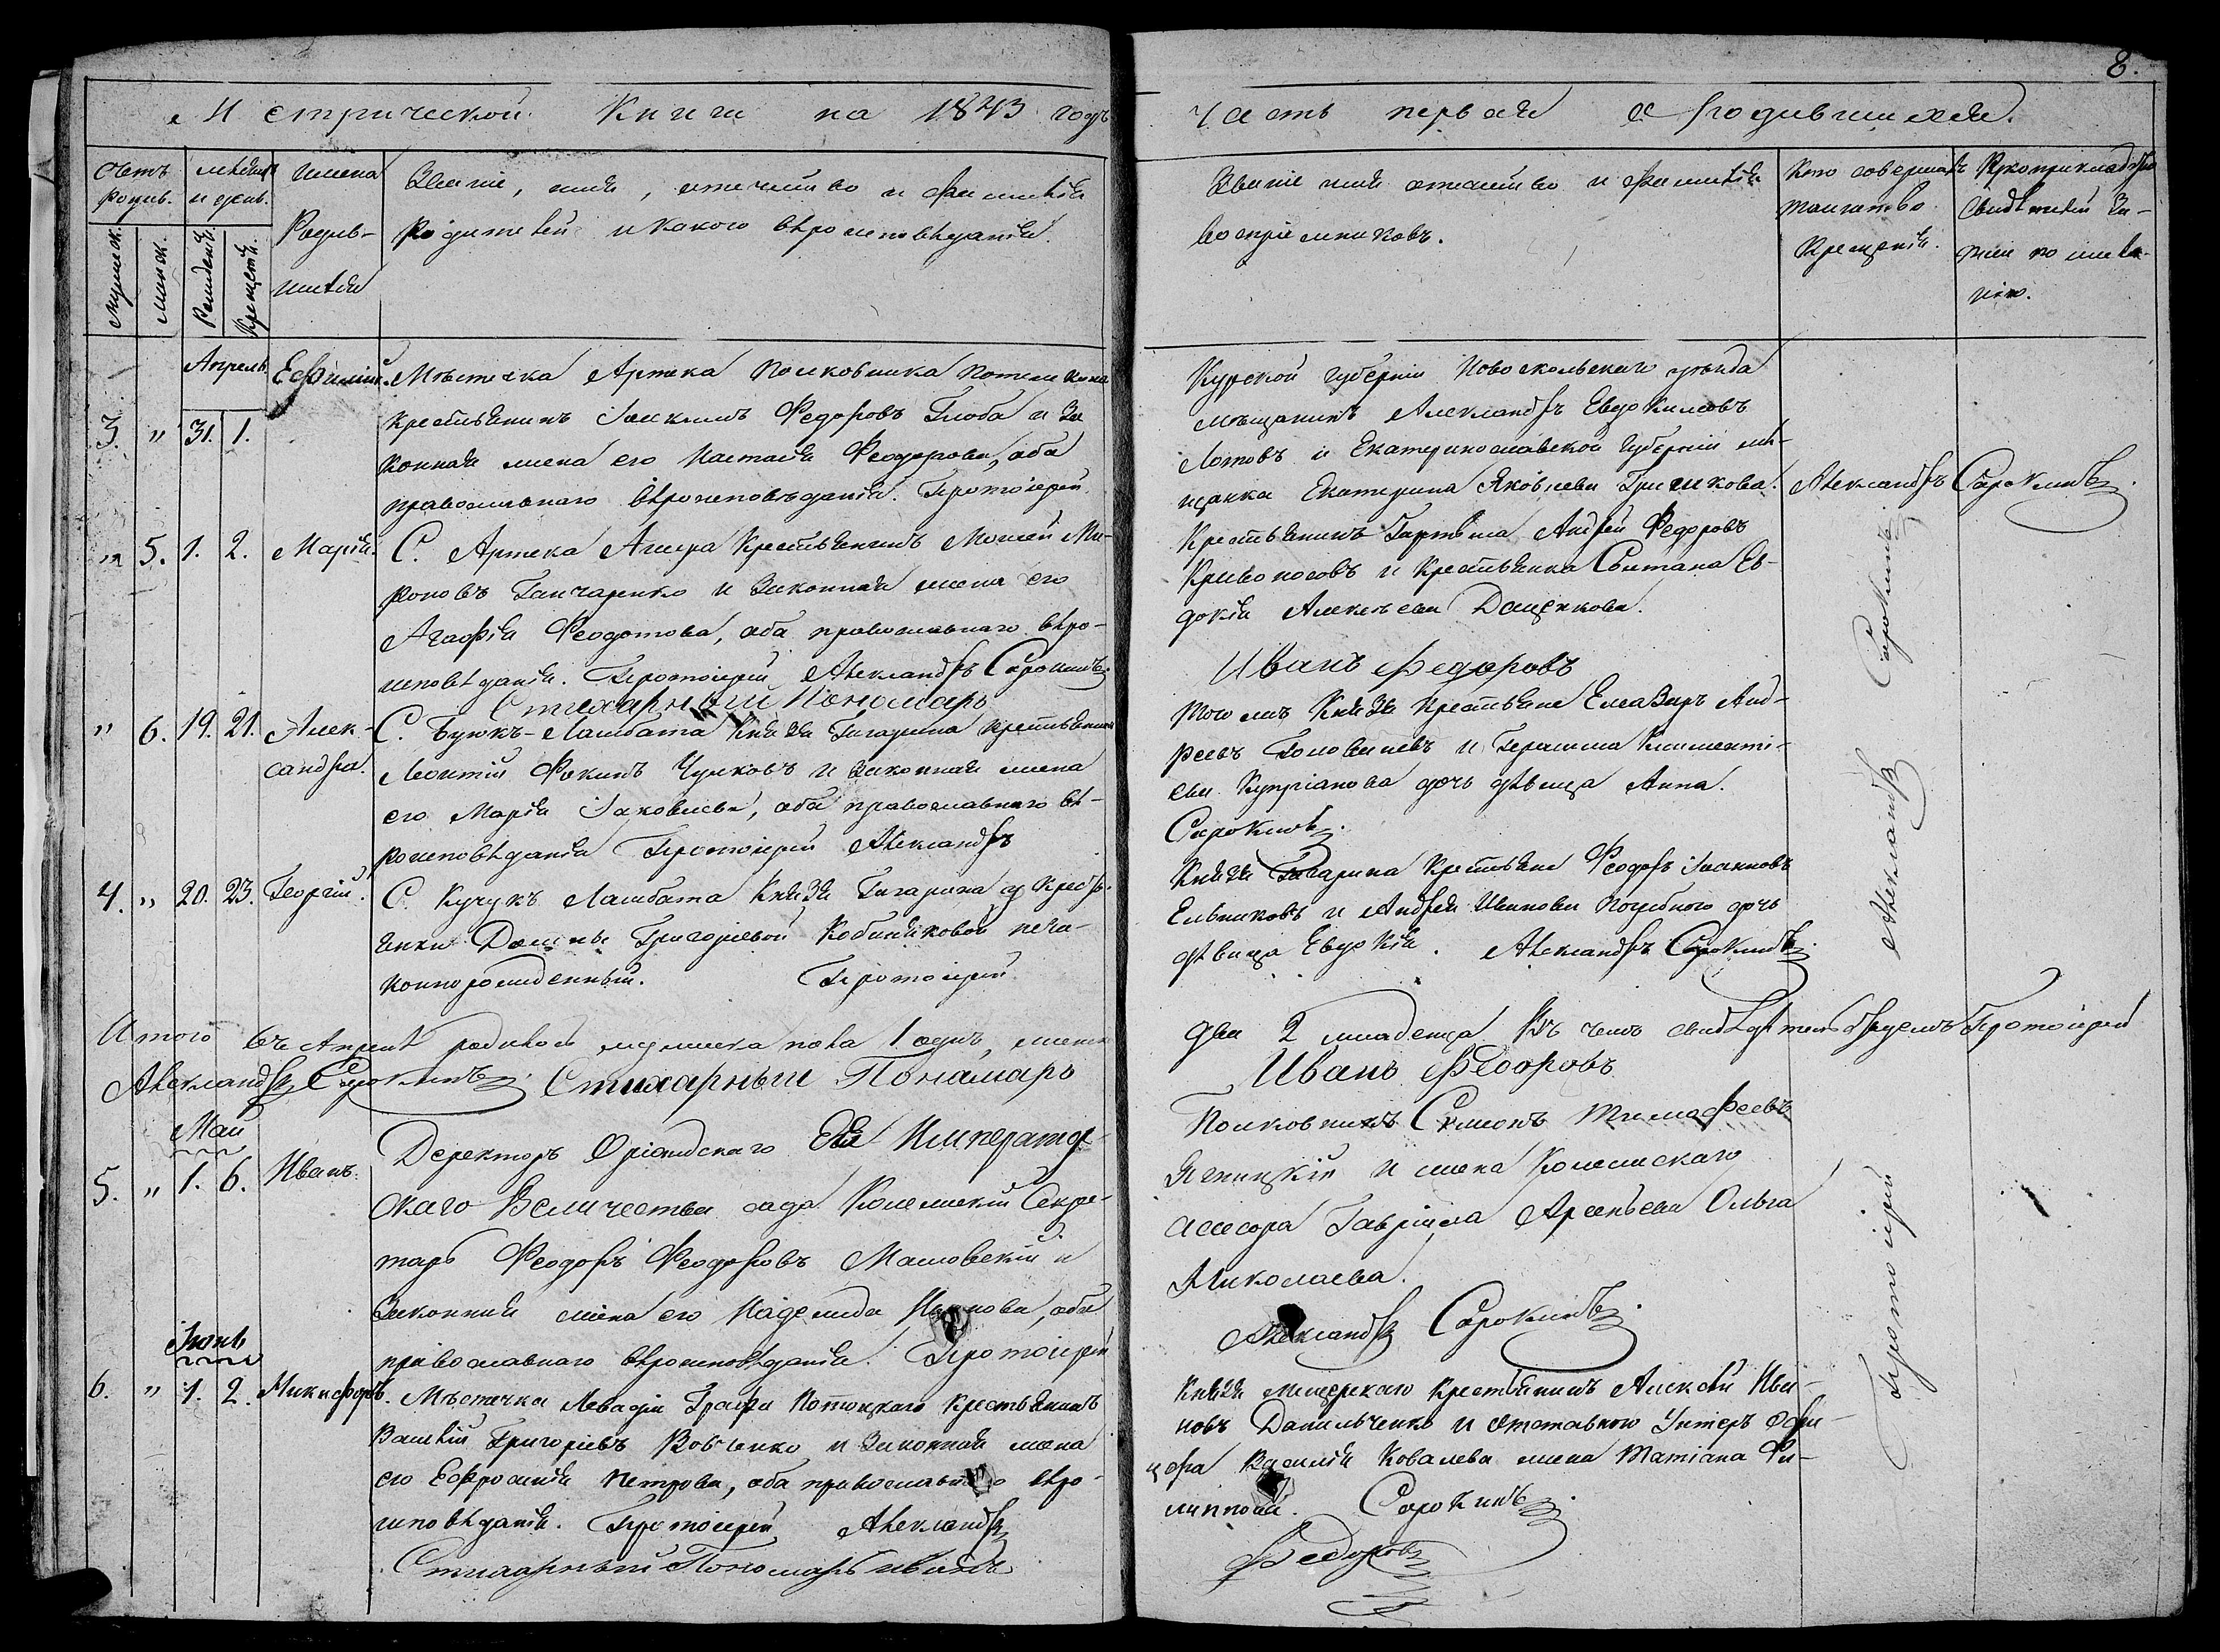 8.
Метрической Книги на 1843 годъ
Часть первая о родившихся.
Счетъ родив.
мѣсяцъ и день.
Имена Родив-
шихся
Званіе, имя, отечество и фамилія
Родителей и какого вѣроисповѣданія.
Мужеск.
Женск.
Рожденія.
Крещенія.
Званіе имя отечество и фамилія
воспріемниковъ.
Кто совершалъ
таинство
Крещенія.
Рукоприкладство
свидѣтелей за-
писи по жела-
нію.
Апрель
3. " 31. 1.
Ефимій.
Мѣстечка Артека Полковника Потемкина
крестьянинъ Іоакимъ Федоровъ Глоба и За
конная жена его Настасія Феодорова, оба
православнаго вѣроисповѣданія. Протоіерей
Курской губерніи Новоскольскаго уѣзда
мѣщанинъ Александръ Евдокимовъ
Лотовъ и Екатеринославской Губерніи мѣ-
щанка Екатерина Яковлева Гришкова.
Александръ Сорокинъ.
" 5. 1. 2. Марія.
С. Артека Ашера Крестьянинъ Мойсей Ми-
роновъ Ганчаренко и Законная жена его
Агафія Феодотова, оба православнаго вѣро-
исповѣданія. Протоіерей Александръ Сорокинъ.
Стихарный Пономарь
Крестьянинъ Андрей Федоровъ
Кривоносовъ и Крестьянка Ев-
докія Алексѣева Даценкова.
Иванъ Федоровъ
" 6. 19. 21. Алек-
сандра.
С. Буюкъ-Ламбата Князя Гагарина крестьянинъ
Леонтій Фокинъ Чулковъ и законная жена
его Марія Іаковлева, оба православнаго вѣ-
роисповѣданія Протоіерей Александръ
Того жъ Князя крестьяне Елеазаръ Анд-
реевъ Головачевъ и Герасима Климентіе-
ва Купріанова дочь дѣвица Анна.
Сорокинъ.
4. " 20. 23. Георгій.
С. Кучукъ Ламбата Князя Гагарина у крестья-
нки Домны Григоріевой Кобиняковой неза-
коннорожденный. Протоіерей
Князя Гагарина Крестьяне Феодоръ Іоанновъ
Ельниковъ и Андрея Иванова Погребного дочь
дѣвица Евдокія. Александръ Сорокинъ.
Итого въ Апрелѣ родилось мужеска пола 1 одинъ, женска
два 2 младенца Въ чемъ свидѣтельствуемъ Протоіерей
Александръ Сорокинъ. Стихарный Пономарь
Иванъ Федоровъ
Май
5. " 1. 6. Иванъ.
Деректоръ Оріандскаго Ея Император-
скаго Величества сада Колежскій Секре-
тарь Феодоръ Феодоровъ Машовскій и
Законная жена его Надежда Иванова, оба
православнаго вѣроисповѣданія. Протоіерей
Полковникъ Семіонъ Тимофеевъ
Ягницкій и жена Колежскаго
Асесора Гавріила Арсеньева Ольга
Николаева.
Александръ Сорокинъ.
Іюнь
6. " 1. 2. Никифоръ.
Мѣстечка Левадіи Графа Потоцкаго Крестьянинъ
Василій Григоріевъ Вовченко и Законная жена
его Ефросинія Петрова, оба православнаго вѣро-
исповѣданія. Протоіерей Александръ
Стихарный Пономарь Иванъ
Князя Мещерскаго Крестьянинъ Алексѣй Ива-
новъ Данильченко и Отставного Унтеръ Офи-
цера Василія Ковалева жена Татіана Фи-
липпова. Сорокинъ.
Федоровъ
Протоіерей Александръ Сорокинъ.